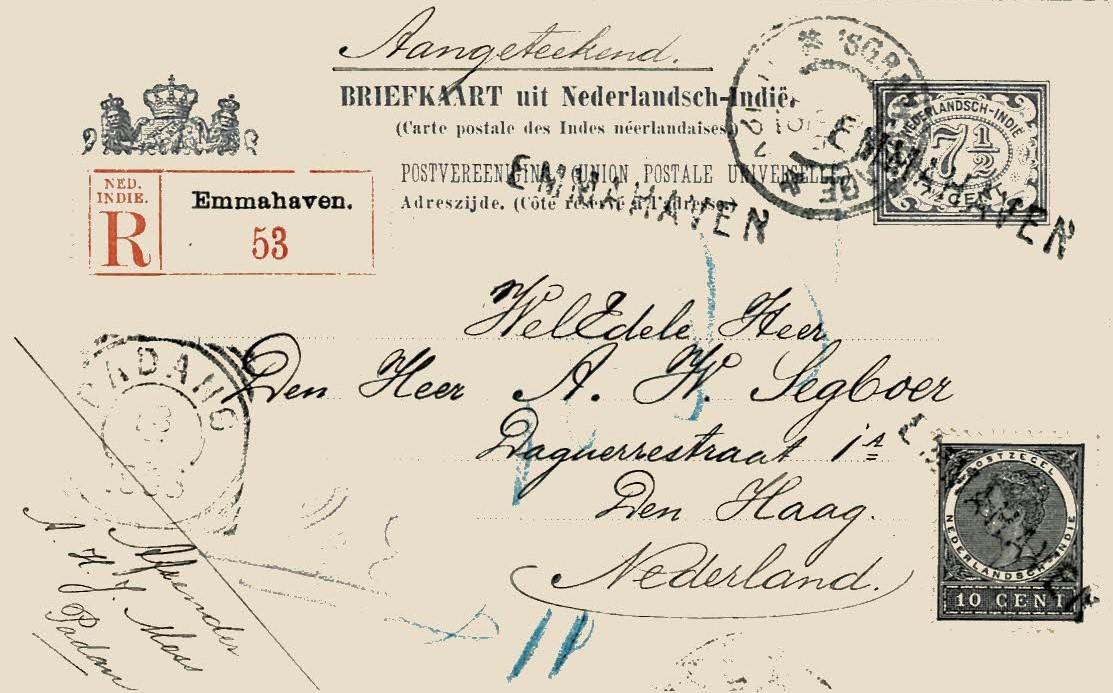 Aangeteekend.
BRIEFKAART uit Nederlandsch-Indië.
(Carte postale des Indes néerlandaises)
POSTVEREENIGING UNION POSTALE UNIVERSELLE
Adreszijde. (Côté réservé à l'adresse)
NEDERLANDSCH-INDIË
7½
CENT
EMMAHAVEN
EMMAHAVEN
NED.
INDIE.
R
Emmahaven.
53
PADANG
WelEdele Heer
Den Heer A. W. Segboer
Daguerrestraat 1A
Den Haag.
Nederland.
POSTZEGEL
NEDERLANDSCH-INDIE
10 CENT
Afzender
A. H. J. Moes
Padan